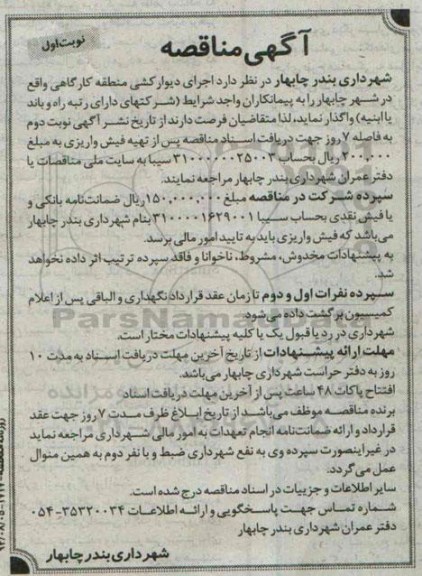 نوبت اول
آگهی مناقصه
شهرداری بندر چابهار در نظر دارد اجرای دیوارکشی منطقه کارگاهی واقع
در شهر چابهار را به پیمانکاران واجد شرایط (شرکتهای دارای رتبه راه و باند
یا ابنیه) واگذار نماید، لذا متقاضیان فرصت دارند از تاریخ نشر آگهی نوبت دوم
به فاصله ۷ روز جهت دریافت اسناد مناقصه پس از تهیه فیش واریزی به مبلغ
۲۰۰,۰۰۰ ریال بحساب ۳۱۰۰۰۰۰۰۲۵۰۰۳ سیبا به سایت ملی مناقصات یا
دفتر عمران شهرداری بندر چابهار مراجعه نمایند.
سپرده شرکت در مناقصه مبلغ ۱۵۰,۰۰۰,۰۰۰ ریال ضمانت‌نامه بانکی و
یا فیش نقدی بحساب سیبا ۳۱۰۰۰۰۱۶۲۹۰۰۱ بنام شهرداری بندر چابهار
می‌باشد که فیش واریزی باید به تایید امور مالی برسد.
به پیشنهادات مخدوش، مشروط، ناخوانا و فاقد سپرده ترتیب اثر داده نخواهد
شد.
سپرده نفرات اول و دوم تا زمان عقد قرارداد نگهداری و الباقی پس از اعلام
کمیسیون برگشت داده می‌شود.
شهرداری در رد یا قبول یک یا کلیه پیشنهادات مختار است.
مهلت ارائه پیشنهادات از تاریخ آخرین مهلت دریافت اسناد به مدت ۱۰
روز به دفتر حراست شهرداری چابهار می‌باشد.
افتتاح پاکات ۴۸ ساعت پس از آخرین مهلت دریافت اسناد
برنده مناقصه موظف می‌باشد از تاریخ ابلاغ ظرف مدت ۷ روز جهت عقد
قرارداد و ارائه ضمانت‌نامه انجام تعهدات به امور مالی شهرداری مراجعه نماید
در غیر اینصورت سپرده وی به نفع شهرداری ضبط و با نفر دوم به همین منوال
عمل می‌گردد.
سایر اطلاعات و جزییات در اسناد مناقصه درج شده است.
شماره تماس جهت پاسخگویی و ارائه اطلاعات ۳۵۳۲۰۰۳۴-۰۵۴
دفتر عمران شهرداری بندر چابهار
شهرداری بندر چابهار
ParsNamad